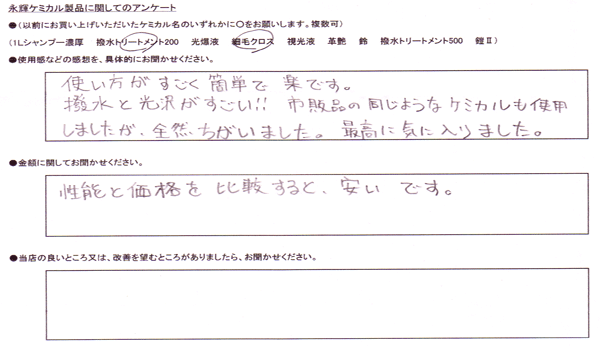 永輝ケミカル製品に関してのアンケート
●(以前にお買い上げいただいたケミカル名のいずれかに○をお願いします。複数可)
(1Lシャンプー濃厚 撥水トリートメント200 光爆液 細毛クロス 視光液 革艶 鈴 撥水トリートメント500 鎧Ⅱ)
●使用感などの感想を、具体的にお聞かせください。
使い方がすごく簡単で楽です。
撥水と光沢がすごい!! 市販品の同じようなケミカルも使用
しましたが、全然ちがいました。最高に気に入りました。
●金額に関してお聞かせください。
性能と価格を比較すると、安いです。
●当店の良いところ又は、改善を望むところがありましたら、お聞かせください。